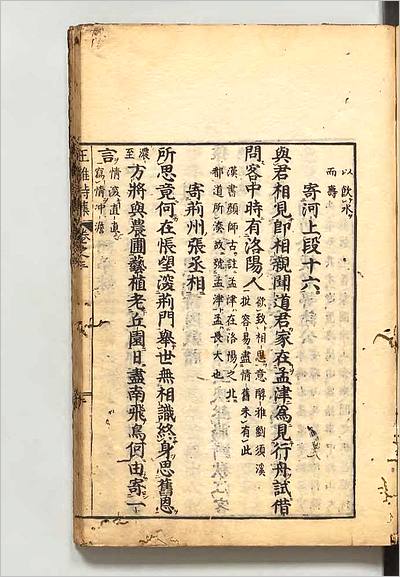 以飲水
而壽
寄河上段十六
與君相見即相親聞道君家在孟津為見行舟試借
問客中時有洛陽人
欲致相思意醉雅劉須溪
批容易盡情舊未有此
漢書顏師古註孟津在洛陽之北
都道所湊故號孟津孟長大也
寄荊州張丞相
所思竟何在悵望深荊門舉世無相識終身思舊恩
方將與農圃藝植老丘園目盡南飛鳥何由寄一
言
濃至
情深直直
寫情冲澹
王維詩集
卷之三